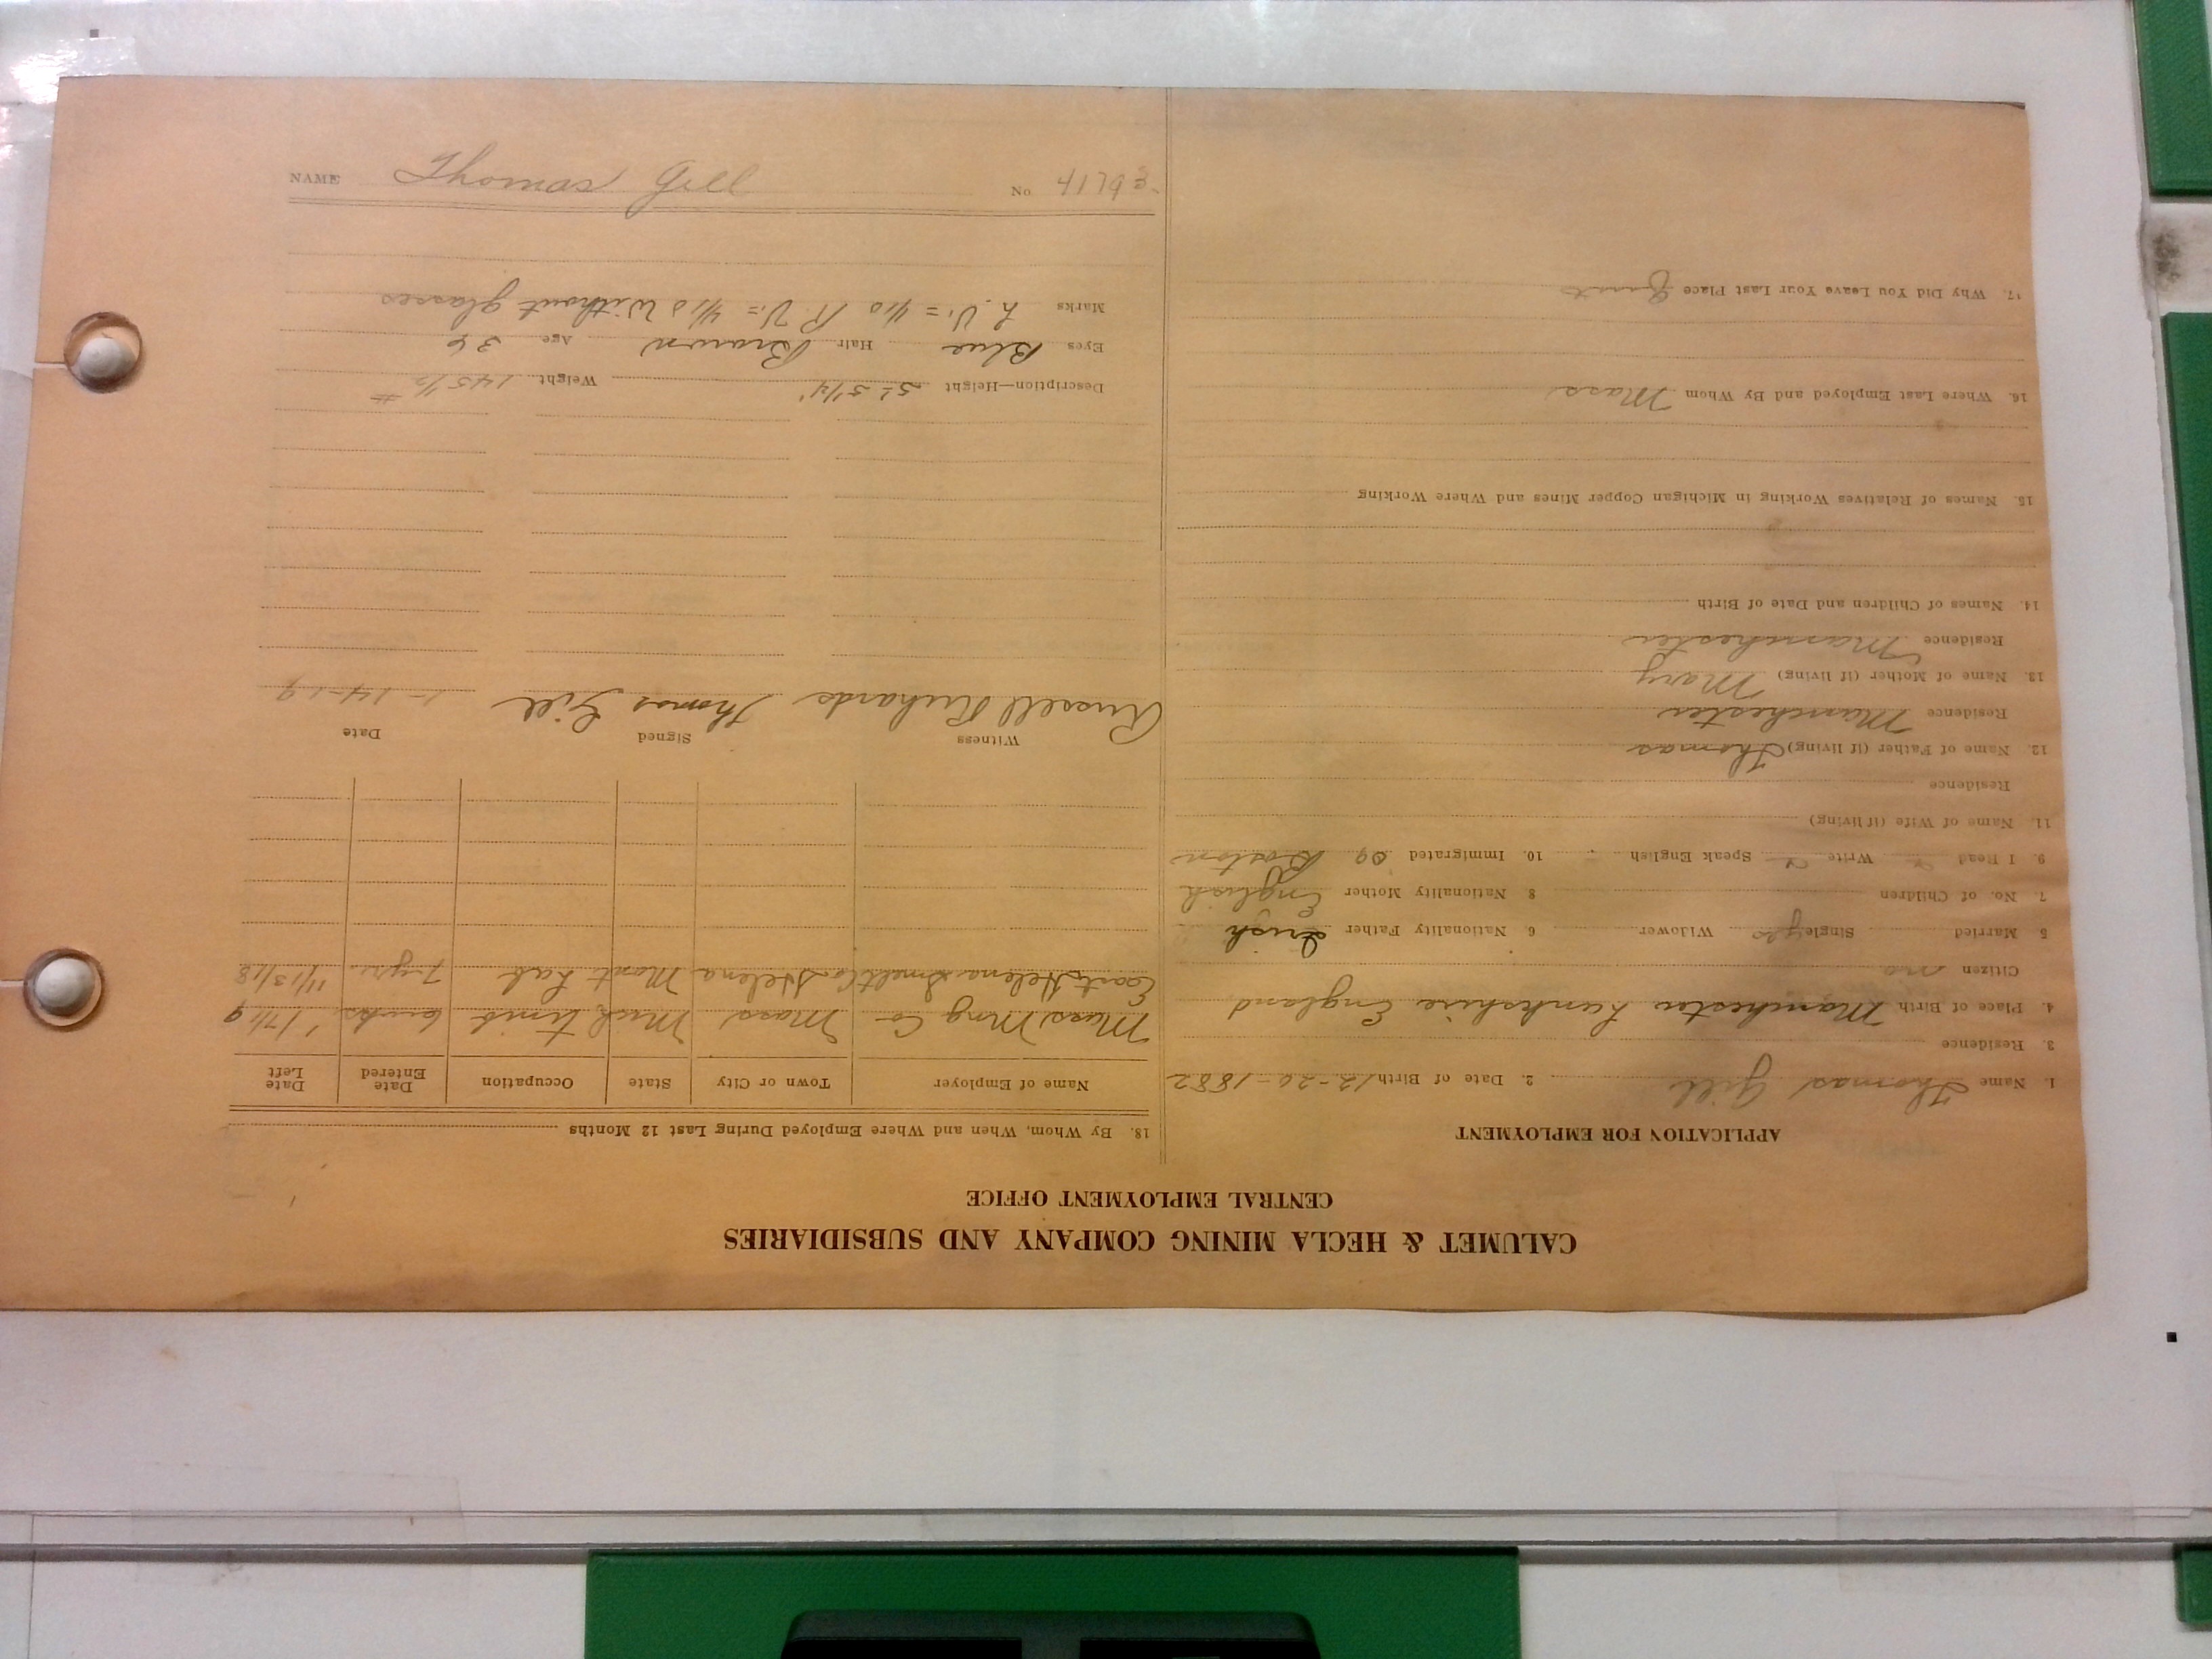 CALUMET & HECLA MINING COMPANY AND SUBSIDIARIES
CENTRAL EMPLOYMENT OFFICE
APPLICATION FOR EMPLOYMENT
1. Name Thomas Gill 2. Date of Birth 12-20-1882
3. Residence
4. Place of Birth Manchester Lankshire England
Citizen no
5 Married Single yes Widower 6 Nationality Father Irish
7. No. of Children 8 Nationality Mother English
9. I Read Write Speak English 10. Immigrated 09 Boston
11. Name of Wife (if living)
Residence
12. Name of Father (if living) Thomas
Residence Manchester
13. Name of Mother (if living) Mary
Residence Manchester
14. Names of Children and Date of Birth
15. Names of Relatives Working in Michigan Copper Mines and Where Working
16. Where Last Employed and By Whom Mass
17. Why Did You Leave Your Last Place Quit
18. By Whom, When and Where Employed During Last 12 Months
Name of Employer Town or City State Occupation Date Entered Date Left
Mass Mng Co Mass Mich Timb 1/7/19
East Helena Smelt Co Helena Mont Lab 7 yrs. 11/13/18
Witness Signed Date
Russell Richards Thomas Gill 1-14-19
Description—Height 5'- 5 1/4" Weight 145 1/2 #
Eyes Blue Hair Brown Age 36
Marks L.V. = 4/10 R.V. = 4/10 Without glasses
NAME Thomas Gill No. 41793